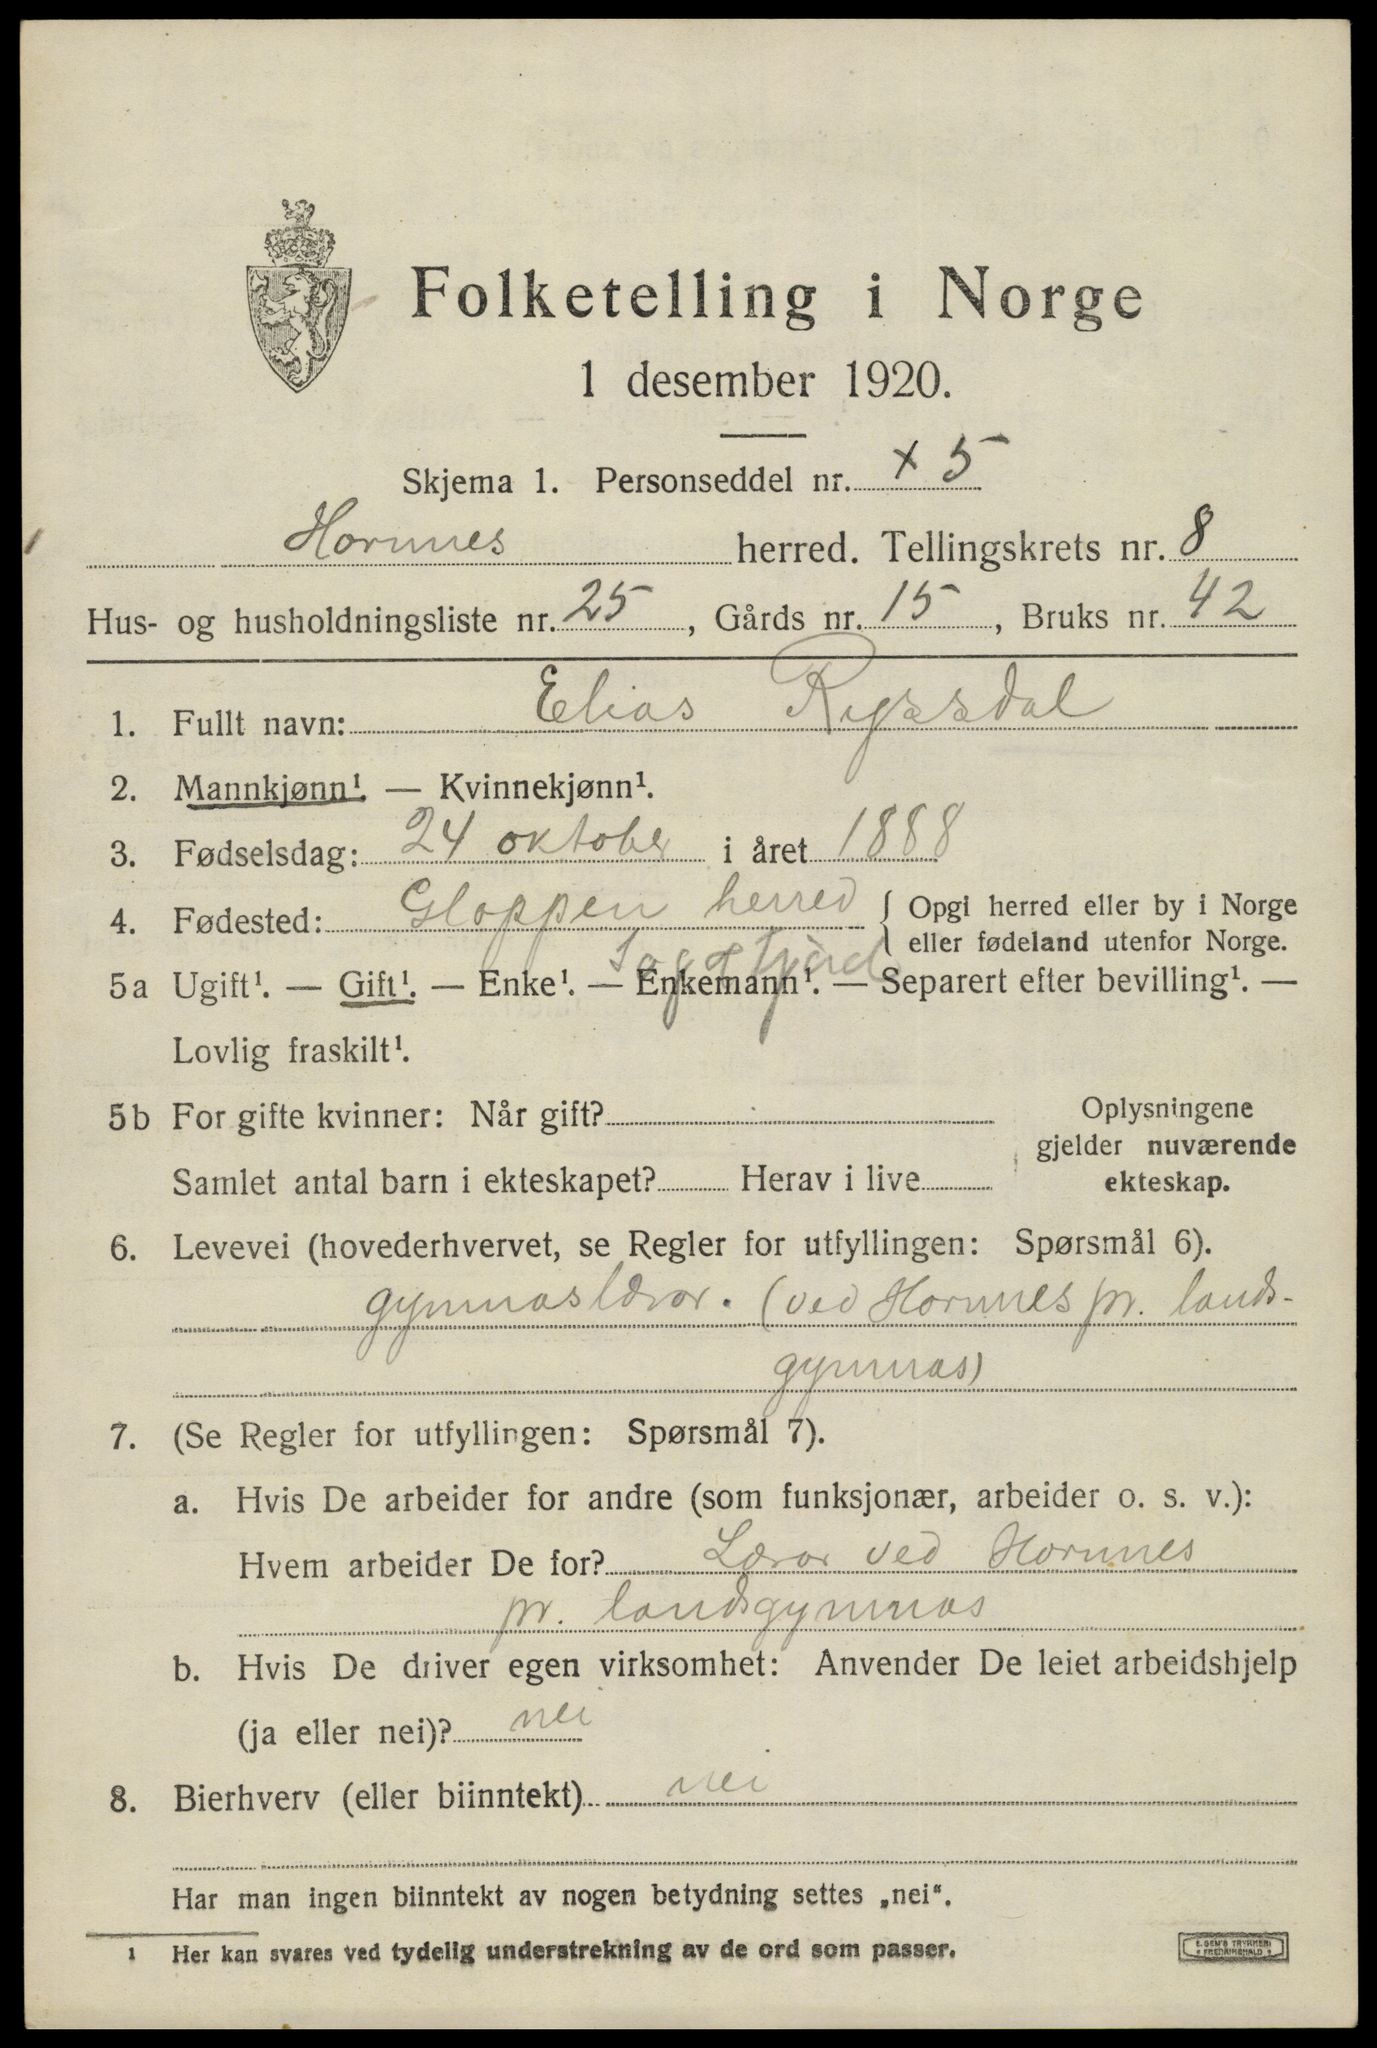 Folketelling i Norge
1 desember 1920.
Skjema 1. Personseddel nr. x 5
Hornnes herred. Tellingskrets nr. 8
Hus- og husholdningsliste nr. 25, Gårds nr. 15, Bruks nr. 42
1. Fullt navn: Elias Ryssdal
2. Mannkjønn¹. — Kvinnekjønn¹.
3. Fødselsdag: 24 oktober i året 1888
4. Fødested: Gloppen herred { Opgi herred eller by i Norge
{ eller fødeland utenfor Norge.
Sogn Fjord
5a Ugift¹. — Gift¹. — Enke¹. — Enkemann¹. — Separert efter bevilling¹. —
Lovlig fraskilt¹.
5b For gifte kvinner: Når gift?
Samlet antal barn i ekteskapet? Herav i live
Oplysningene
gjelder nuværende
ekteskap.
6. Levevei (hovederhvervet, se Regler for utfyllingen: Spørsmål 6).
gymnaslærar. (ved Hornnes pr. lands-
gymnas)
7. (Se Regler for utfyllingen: Spørsmål 7).
a. Hvis De arbeider for andre (som funksjonær, arbeider o. s. v.):
Hvem arbeider De for? Lærar ved Hornnes
pr. landsgymnas
b. Hvis De driver egen virksomhet: Anvender De leiet arbeidshjelp
(ja eller nei)? nei
8. Bierhverv (eller biinntekt) nei
Har man ingen biinntekt av nogen betydning settes „nei“.
¹ Her kan svares ved tydelig understrekning av de ord som passer.
E. SEM'S TRYKKERI
FREDRIKSHALD